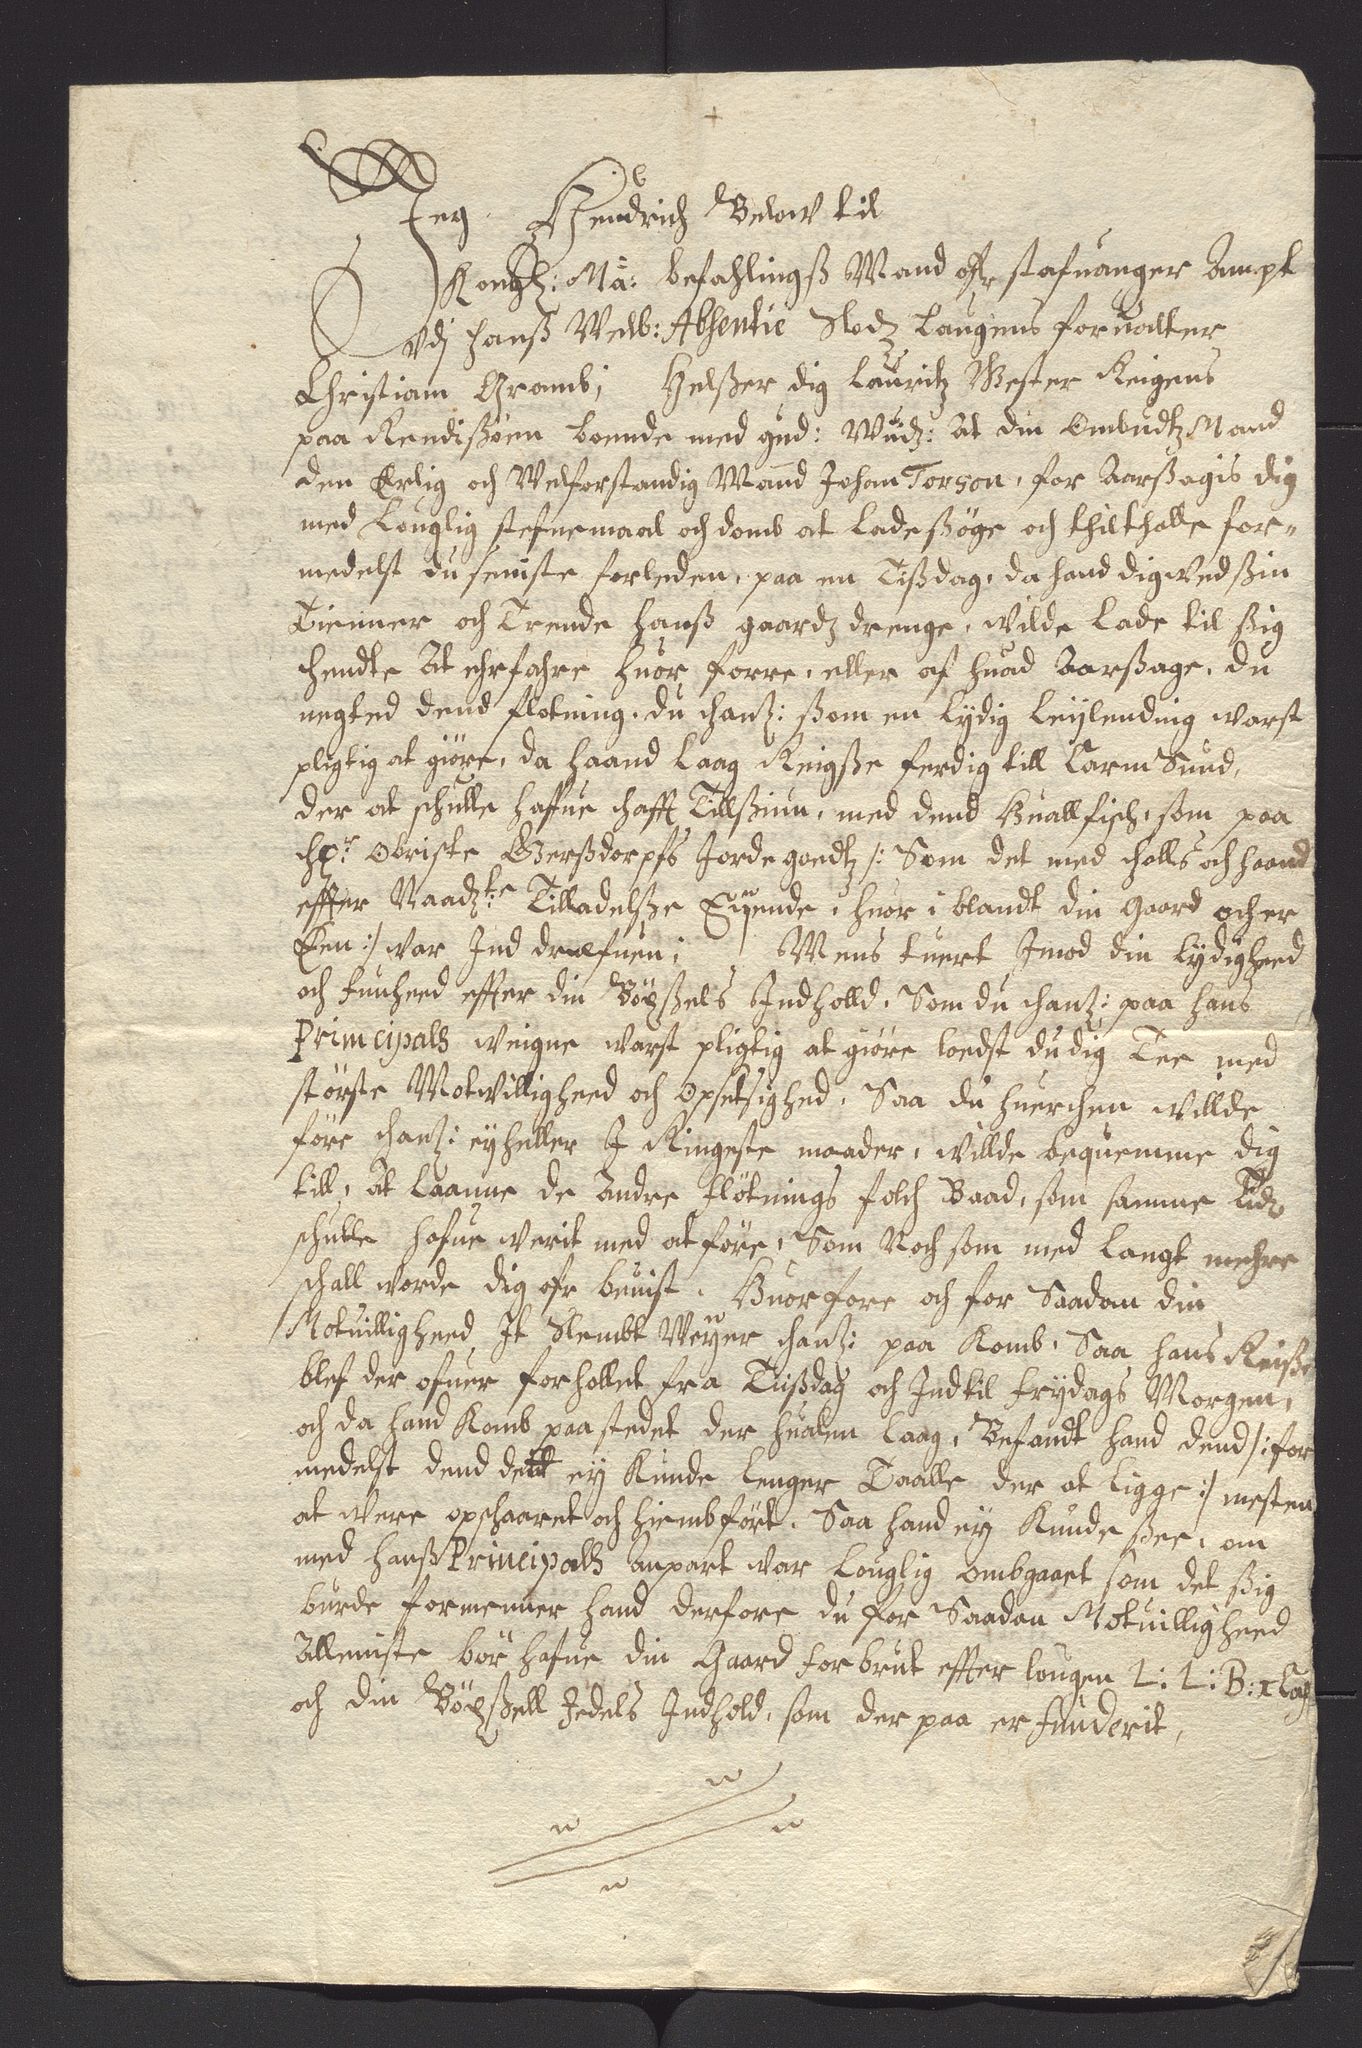 Jeg Hendrich Below til
Kongl: Ma: befahlingß Mand ofr Stafuanger Ampt
Vdj hanß Welb: Absentie Slodtz Laugens foruolter
Christian Gramb; Helßer dig Lauritz Wester Reigens
paa Rendißöen boende med gud: Wudz: At din Ombudtz Mand
den Erlig och Velforstandig Mand Johan Torson, for Aarßagis dig
med Louglig stefnemaal och domb at lade ßöge och thilthalle for-
medelst du seniste forleden, paa en Tißdag, da hand dig ved ßin
Tienner och Trende hanß gaardz drenge, wilde lade til ßig
hendte At ehrfahre huor forre, eller af huad Aarßage, du
negted dend flotning, du hanß: ßom en lydig Leylending warst
pligtig at giöre, da haand laag Reigße ferdig till Carm Sund,
der at schulle hafue hafft Tillßiun, med dend Huallfisch, som paa
H: Obriste Gerßdorpfs Jorde goedtz /: Som det med halls och haand
effter Naadz: Tilladelße Eyende, huor i blandt din gaard och er
Een :/ war Ind drefuen; Mens tuert Imod din lydigheed
och huuheed effter din Böxßels Indholld, Som du hanß: paa hans
Principals weigne warst pligtig at giöre loedst du dig Tee med
störste Motwilligheed och Opsetsighed, Saa du huerchen willde
före hanß: ey heller I Ringeste maader, willde bequemme dig
till, At laanne de Andre flötnings folch Baad, som samme Tid
schulle hafue werit med at före, Som Noch som med langt mehre
schall worde dig ofr beuist, Huorfore och for Saadan din
Motuilligheed It Slembt Weyer hanß: paa Komb, Saa hans Reiße
blef der ofuer forhollet fra Tiißdag och Indtil frydags Morgen,
och da hand Komb paa stedet der hualen laag, Befandt hand dend /: for
medelst dend dett ey Kunde lenger Taalle der at ligge :/ mesten
at were opschaaret och hiembfört, Saa hand ey Kunde ßee, om
med hanß Principals Anpart war louglig ombgaaet som det ßig
burde formenner hand derfore du for Saadan Motuilligheed
Allenniste bör hafue din Gaard forbrut effter lougen L: L: B: 1 Cap
och din Böxßell Zedels Indhold, som der paa er funderit,